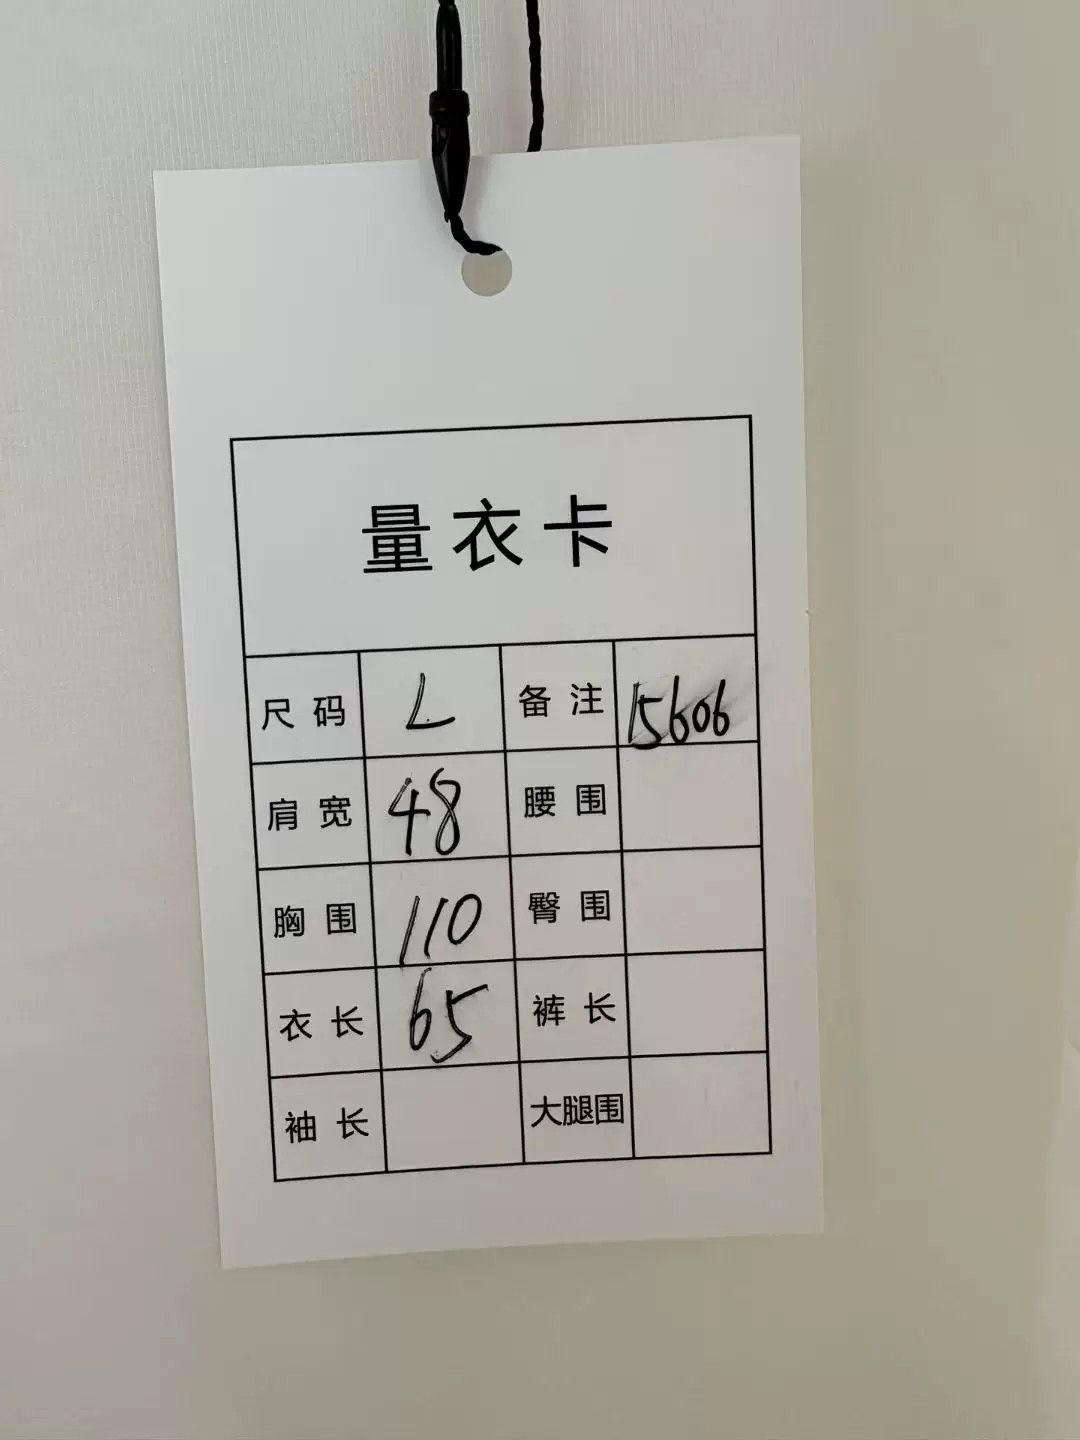 量衣卡
尺码 L 备注 15606
肩宽 48 腰围
胸围 110 臀围
衣长 65 裤长
袖长 大腿围